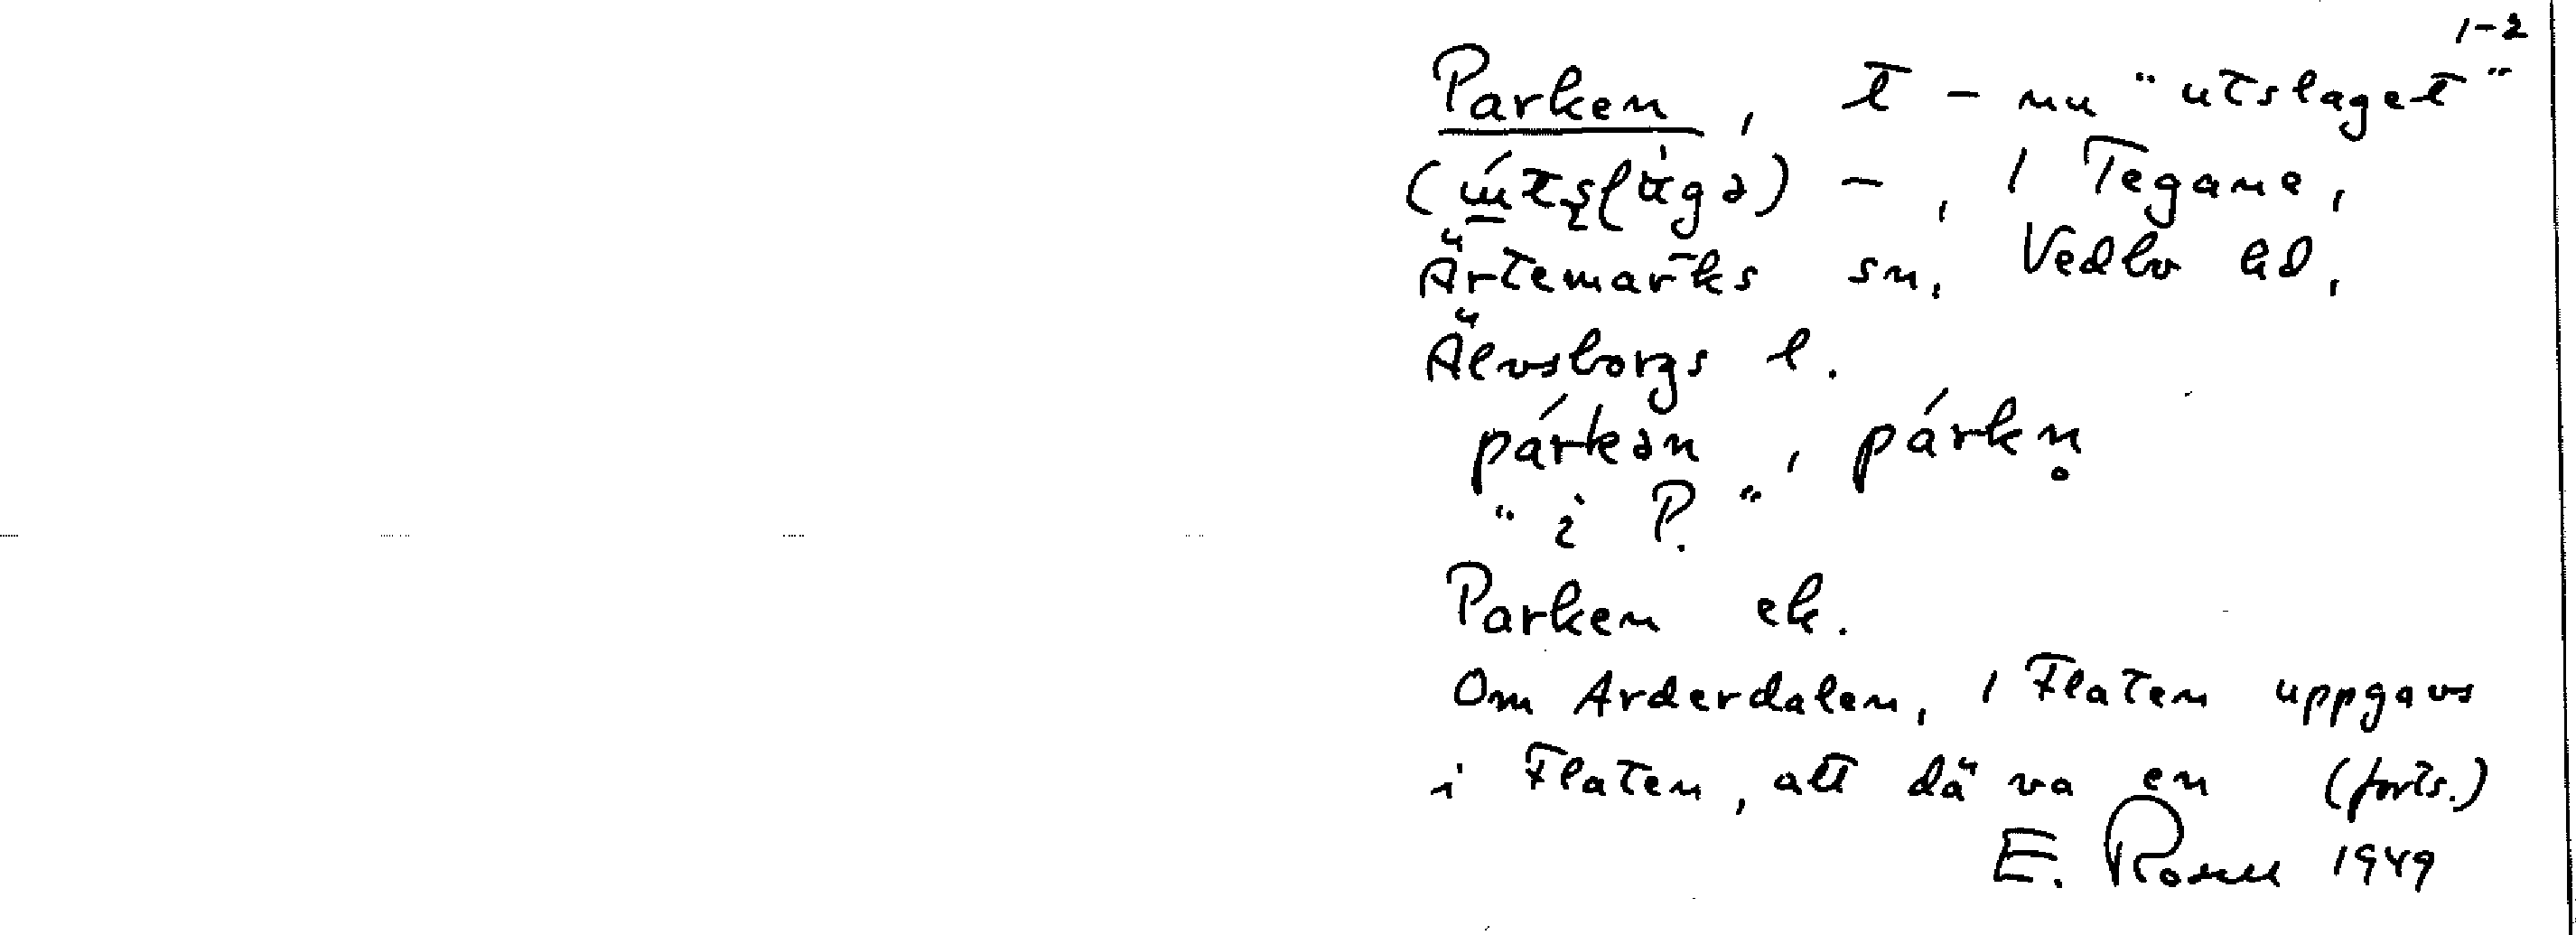 1-2
Parken, t - nu "utslaget"
( ) -, / Tegane,
Ärtemarks sn, Vedbo hd,
Älvsborgs l.
párkən, párkn̥
"i P."
Parken ek.
Om Arderdalen, / Flaten uppgavs
i Flaten, att dä va en (forts.)
E. 1949